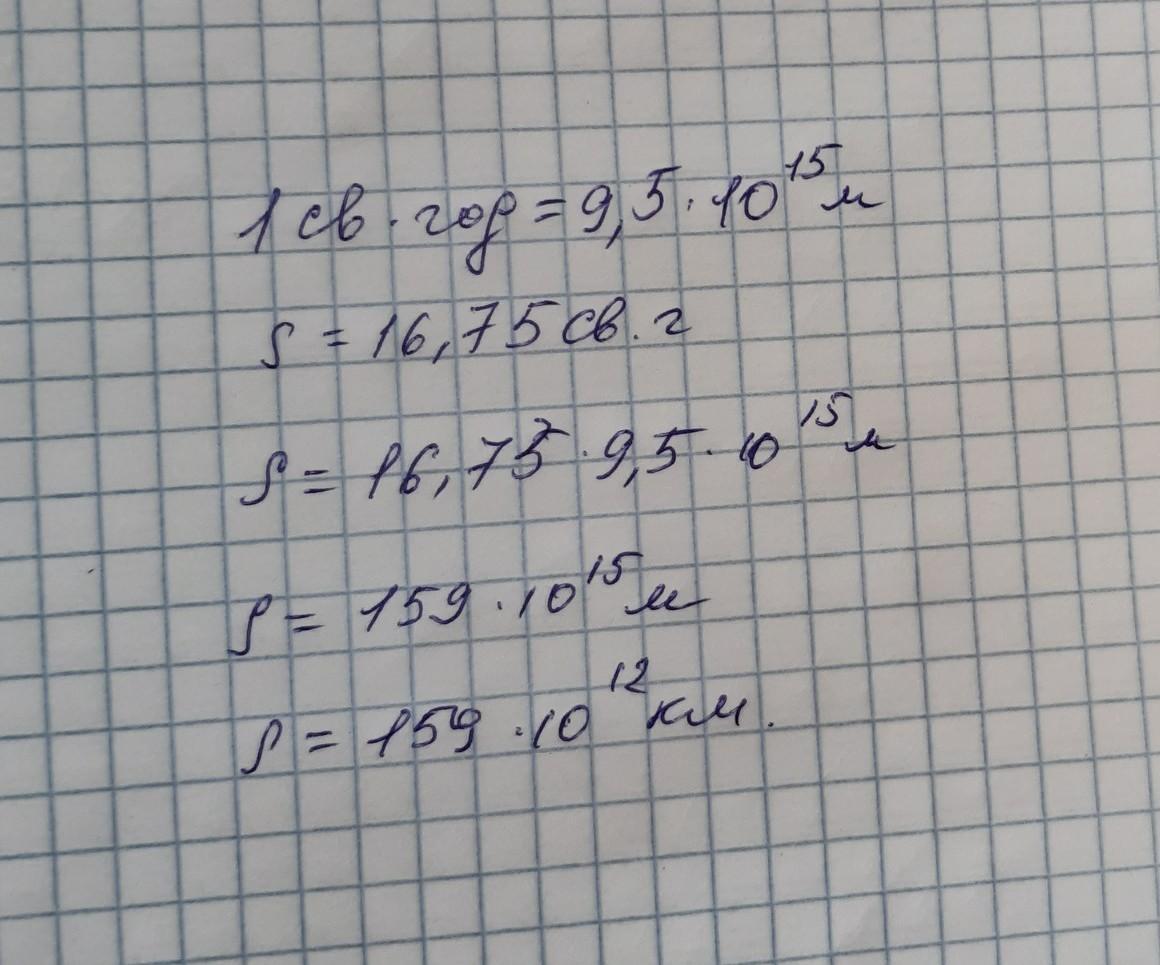 1 св. год = 9,5 · 10¹⁵ м
S = 16,75 св. г
S = 16,75 · 9,5 · 10¹⁵ м
S = 159 · 10¹⁵ м
S = 159 · 10¹² км.